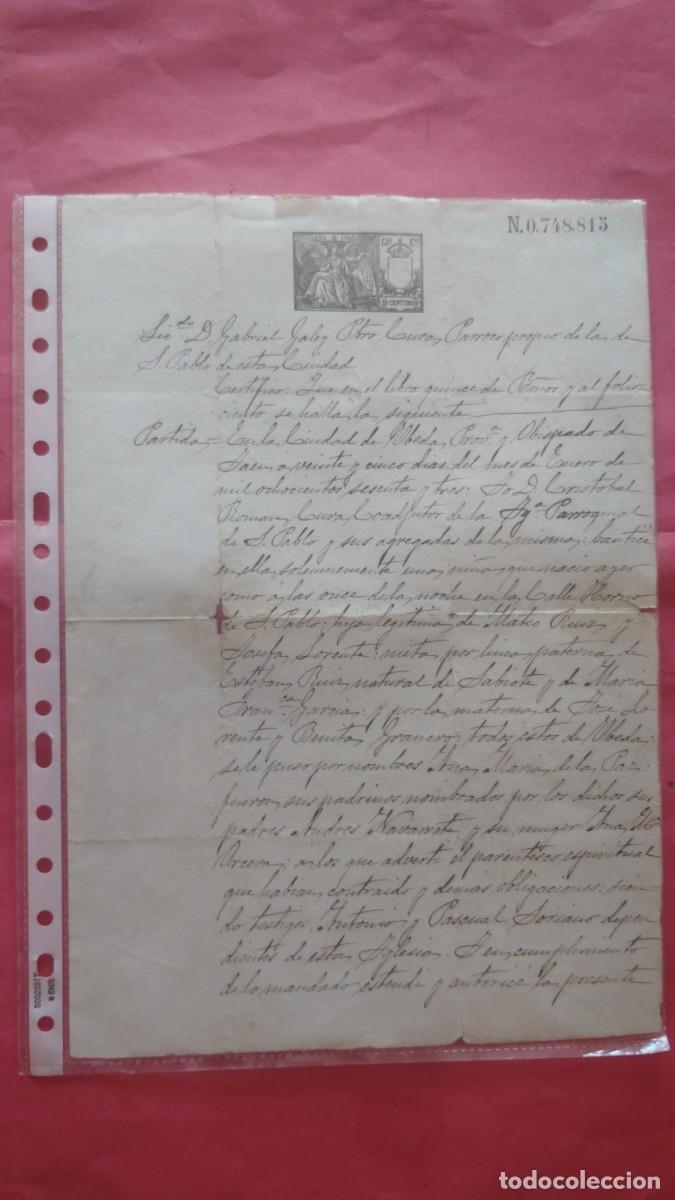 N.0.748.815
12ª Cª
10 CENTIMOS
Licdo D. Gabriel Galey Pbro Cura Parroco propio de la de
S. Pablo de esta Ciudad
Certifico: Que en el libro quince de y al folio
ciento se halla la siguiente
Partida = En la Ciudad de Ubeda Prova y Obispado de
Jaen a veinte y cinco dias del mes de Enero de
mil ochocientos sesenta y tres: Yo D. Cristobal
Roman Cura Coadjutor de la Yga Parroquial
de S. Pablo y sus agregadas de la misma: bauticé
en ella solemnemente una niña que nacio ayer
como a las once de la noche en la Calle Horno
de S. Pablo: hija legitima de Mateo Ruiz y
Josefa Lorente: nieta por linea paterna de
Esteban Ruiz natural de Sabiote y de Maria
Franca Garcia: y por la materna de José Lo
rente y Benita Granero, todos estos de Ubeda:
se le puso por nombres Ana Maria de la Paz:
fueron sus padrinos nombrados por los dichos sus
padres Andres Navarrete y su muger Ana Ma
Orcera: a los que adverti el parentisco espiritual
que habian contraido y demas obligaciones: sien
do testigos Antonio y Pascual Soriano depen
dientes de esta Iglesia. Y en cumplimiento
de lo mandado estendi y autoricé la presente
todocoleccion